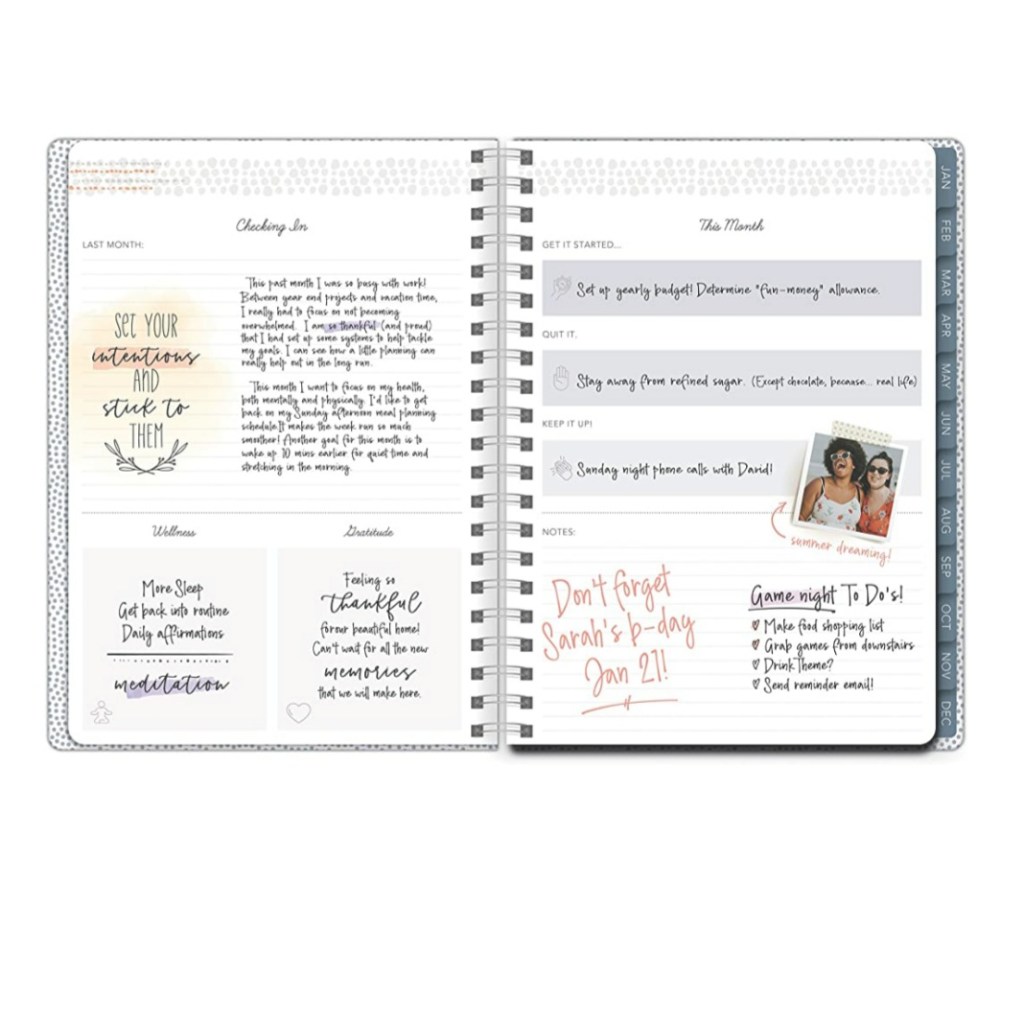 Checking In
LAST MONTH:
SET YOUR
intentions
AND
stick to
THEM
This past month I was so busy with work!
Between year end projects and vacation time,
I really had to focus on not becoming
overwhelmed. I am so thankful (and proud)
that I had set up some systems to help tackle
my goals. I can see how a little planning can
really help out in the long run.
This month I want to focus on my health,
both mentally and physically. I'd like to get
back on my Sunday afternoon meal planning
schedule.It makes the week run so much
smoother! Another goal for this month is to
wake up 10 mins earlier for quiet time and
stretching in the morning.
Wellness
More Sleep
Get back into routine
Daily affirmations
meditation
Gratitude
Feeling so
thankful
for our beautiful home!
Can't wait for all the new
memories
that we will make here.
This Month
GET IT STARTED...
Set up yearly budget! Determine "fun-money" allowance.
QUIT IT.
Stay away from refined sugar. (Except chocolate, because... real life)
KEEP IT UP!
Sunday night phone calls with David!
summer dreaming!
NOTES:
Don't forget
Sarah's b-day
Jan 27!
Game night To Do's!
Make food shopping list
Grab games from downstairs
Drink Theme?
Send reminder email!
JAN
FEB
MAR
APR
MAY
JUN
JUL
AUG
SEP
OCT
NOV
DEC